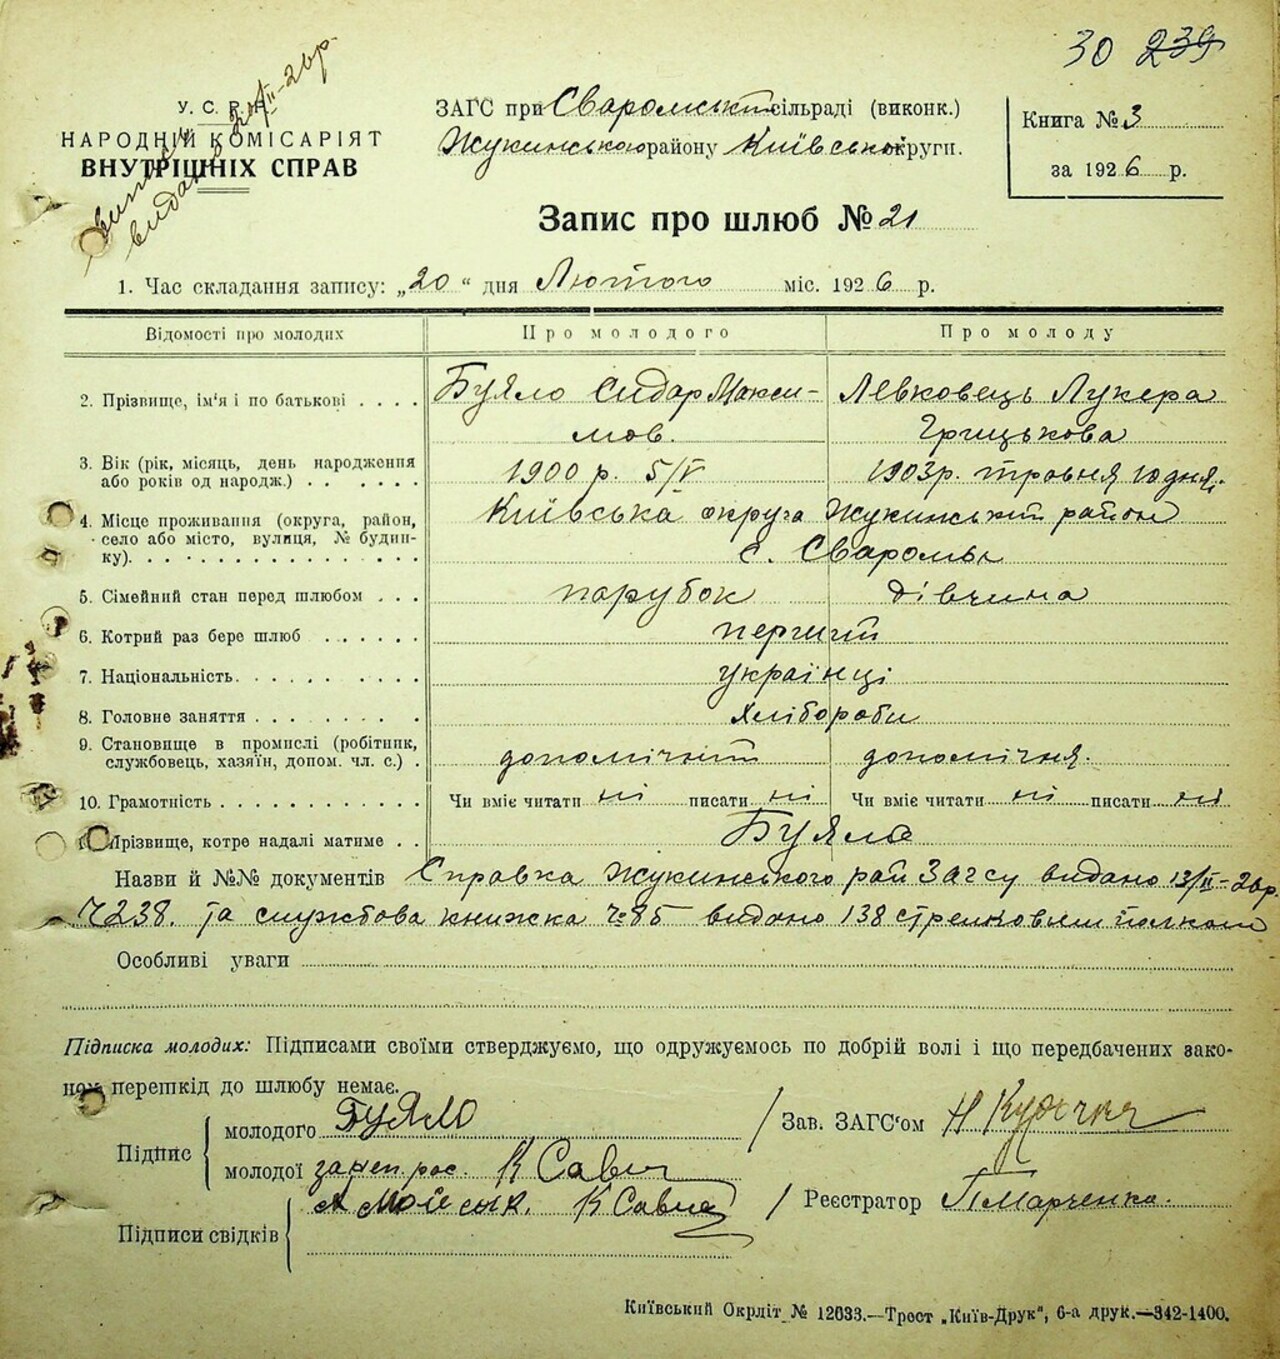 30 239
У. С. Р. Р.
НАРОДНІЙ КОМІСАРІЯТ
ВНУТРІШНІХ СПРАВ
ЗАГС при Сваромській сільраді (виконк.)
Жукинського району Київської округи.
Книга № 3
за 1926 р.
Запис про шлюб № 21
1. Час складання запису: „20“ дня Лютого міс. 1926 р.
Відомості про молодих Про молодого Про молоду
2. Прізвище, ім'я і по батькові . . . . Буяло Сидар Макси- Левковець Лукера
мов. Грицькова
3. Вік (рік, місяць, день народження
або років од народж.) . . . . . . 1900 р. 5/V 1903 р. травня 10 дня.
4. Місце проживання (округа, район,
село або місто, вулиця, № будин-
ку). . . . . . . . . . . . . . . Київська округа Жукинський район
с. Сваромьє
5. Сімейний стан перед шлюбом . . . парубок дівчина
6. Котрий раз бере шлюб . . . . . . перший
7. Національність. . . . . . . . . . українці
8. Головне заняття . . . . . . . . . хлібороби
9. Становище в промислі (робітник,
службовець, хазяїн, допом. чл. с.) . допомічний допомічня.
10. Грамотність . . . . . . . . . . . . Чи вміє читати ні писати ні Чи вміє читати ні писати ні
Прізвище, котре надалі матиме . . Буяло
Назви й №№ документів Справка Жукинського рай Загсу видано 13/II-26р.
Ч238. та службова книжка №85 видано 138 стрелковым полком
Особливі уваги
Підписка молодих: Підписами своїми стверджуємо, що одружуємось по добрій волі і що передбачених зако-
ном перешкід до шлюбу немає.
Підпис
молодого Буяло
Зав. ЗАГС'ом
молодої за неп. рос. К Савич
Підписи свідків К Савич
Реєстратор Марченко.
Київський Окрліт № 12033.—Трест „Київ-Друк“, 6-а друк.—342-1400.